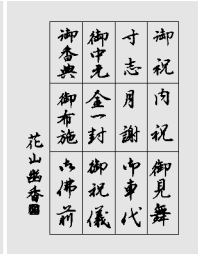 御祝
内祝
御見舞
寸志
月謝
御車代
御中元
金一封
御祝儀
御香典
御布施
御佛前
花山幽香